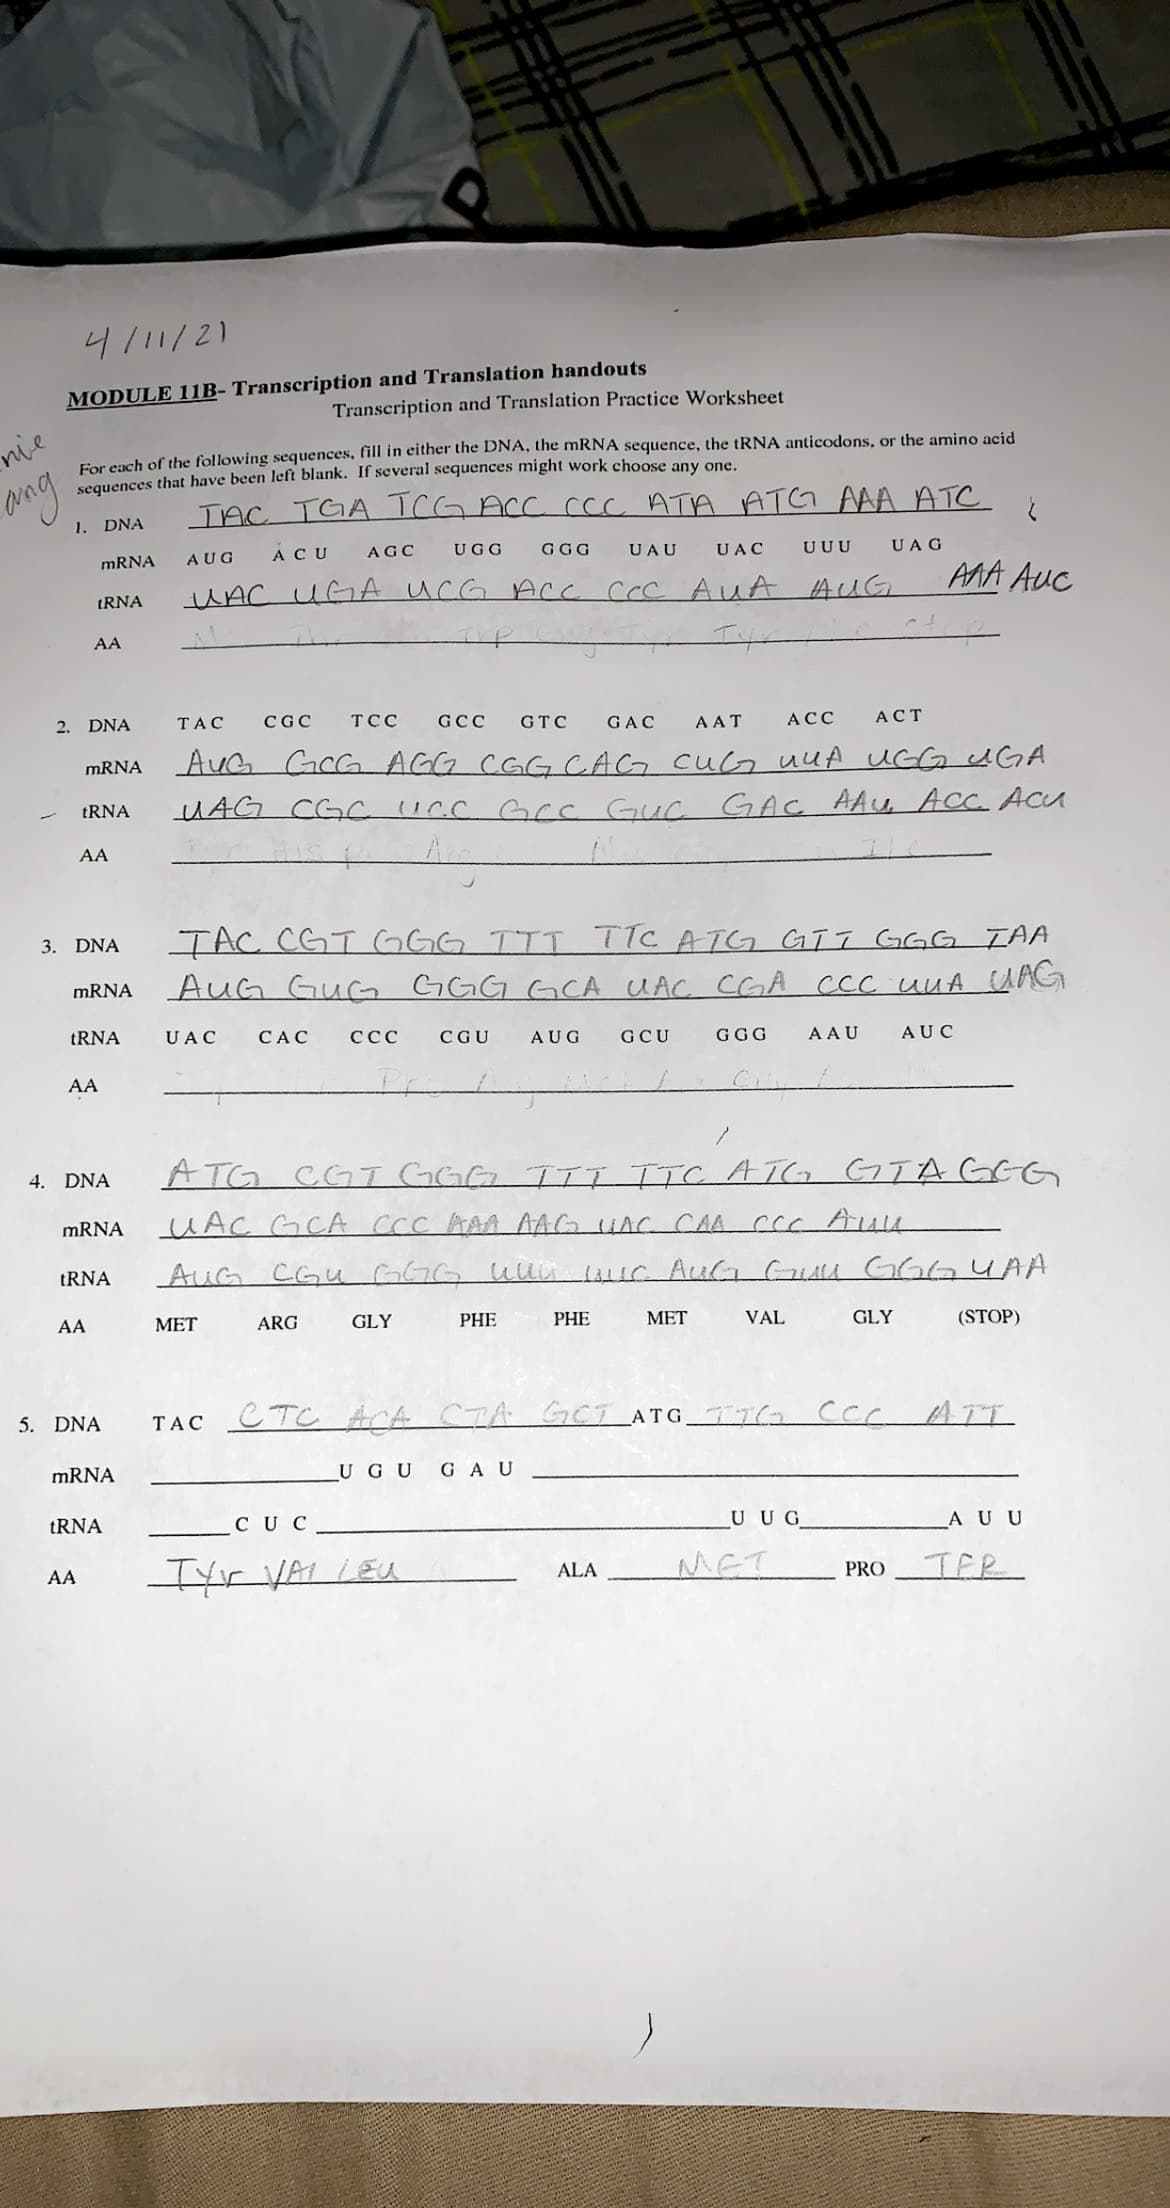 P
4/11/21
MODULE 11B- Transcription and Translation handouts
Transcription and Translation Practice Worksheet
For each of the following sequences, fill in either the DNA, the mRNA sequence, the tRNA anticodons, or the amino acid
sequences that have been left blank. If several sequences might work choose any one.
1. DNA TAC TGA TCG ACC CCC ATA ATG AAA ATC
mRNA AUG ACU AGC UGG GGG UAU UAC UUU UAG
tRNA UAC UGA UCG ACC CCC AUA AUG AAA AUC
AA Trp Tyr Stop
2. DNA TAC CGC TCC GCC GTC GAC AAT ACC ACT
mRNA AUG GCG AGG CGG CAG CUG UUA UGG UGA
tRNA UAG CGC UCC GCC GUC GAC AAU ACC ACU
AA His
3. DNA TAC CGT GGG TTT TTC ATG GTT GGG TAA
mRNA AUG GUG GGG GCA UAC CGA CCC UUA UAG
tRNA UAC CAC CCC CGU AUG GCU GGG AAU AUC
AA
4. DNA ATG CGT GGG TTT TTC ATG GTA GGG
mRNA UAC GCA CCC AAA AAG UAC CAA CCC AUU
tRNA AUG CGU GGG UUU UUC AUG GUU GGG UAA
AA MET ARG GLY PHE PHE MET VAL GLY (STOP)
5. DNA TAC CTC ACA CTA GCT ATG TTG CCC ATT
mRNA UGU GAU
tRNA CUC UUG AUU
AA Tyr VAl LEU ALA MET PRO TER